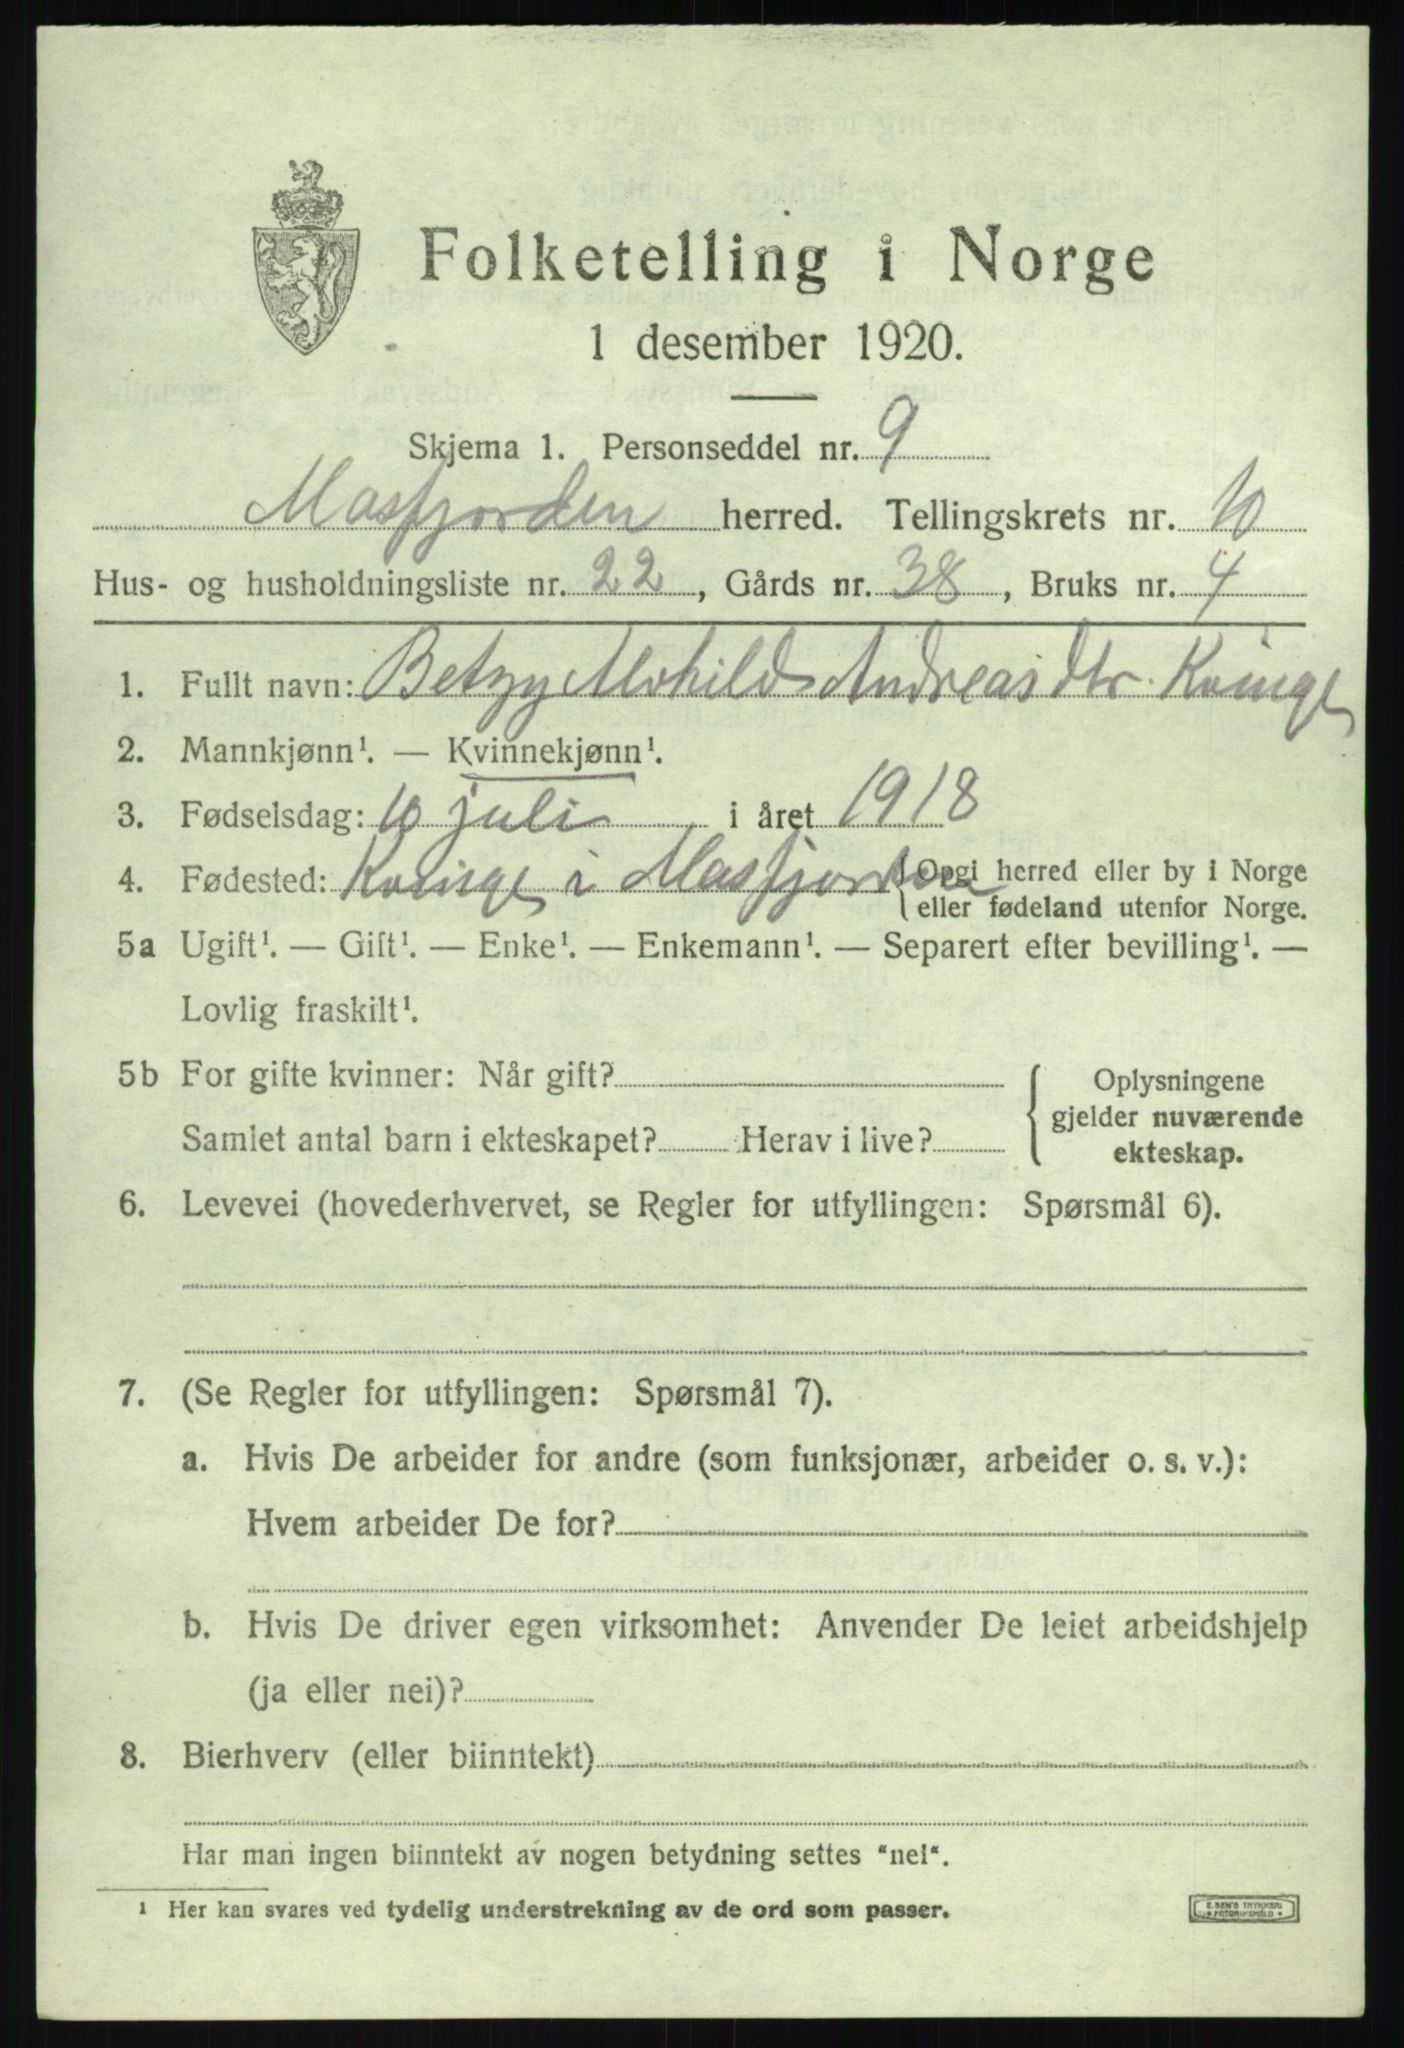 Folketelling i Norge
1 desember 1920.
Skjema 1. Personseddel nr. 9
Masfjorden herred. Tellingskrets nr. 10
Hus- og husholdningsliste nr. 22, Gårds nr. 38, Bruks nr. 4
1. Fullt navn: Betzy Alvhild Andreasdtr. Kvinge
2. Mannkjønn¹. — Kvinnekjønn¹.
3. Fødselsdag: 10 juli i året 1918
4. Fødested: Kvinge i Masfjorden {Opgi herred eller by i Norge
eller fødeland utenfor Norge.
5a Ugift¹. — Gift¹. — Enke¹. — Enkemann¹. — Separert efter bevilling¹. —
Lovlig fraskilt¹.
5b For gifte kvinner: Når gift?
Samlet antal barn i ekteskapet? Herav i live?
Oplysningene
gjelder nuværende
ekteskap.
6. Levevei (hovederhvervet, se Regler for utfyllingen: Spørsmål 6).
7. (Se Regler for utfyllingen: Spørsmål 7).
a. Hvis De arbeider for andre (som funksjonær, arbeider o. s. v.):
Hvem arbeider De for?
b. Hvis De driver egen virksomhet: Anvender De leiet arbeidshjelp
(ja eller nei)?
8. Bierhverv (eller biinntekt)
Har man ingen biinntekt av nogen betydning settes "nei".
¹ Her kan svares ved tydelig understrekning av de ord som passer.
E. SEM'S TRYKKERI
FREDRIKSHALD